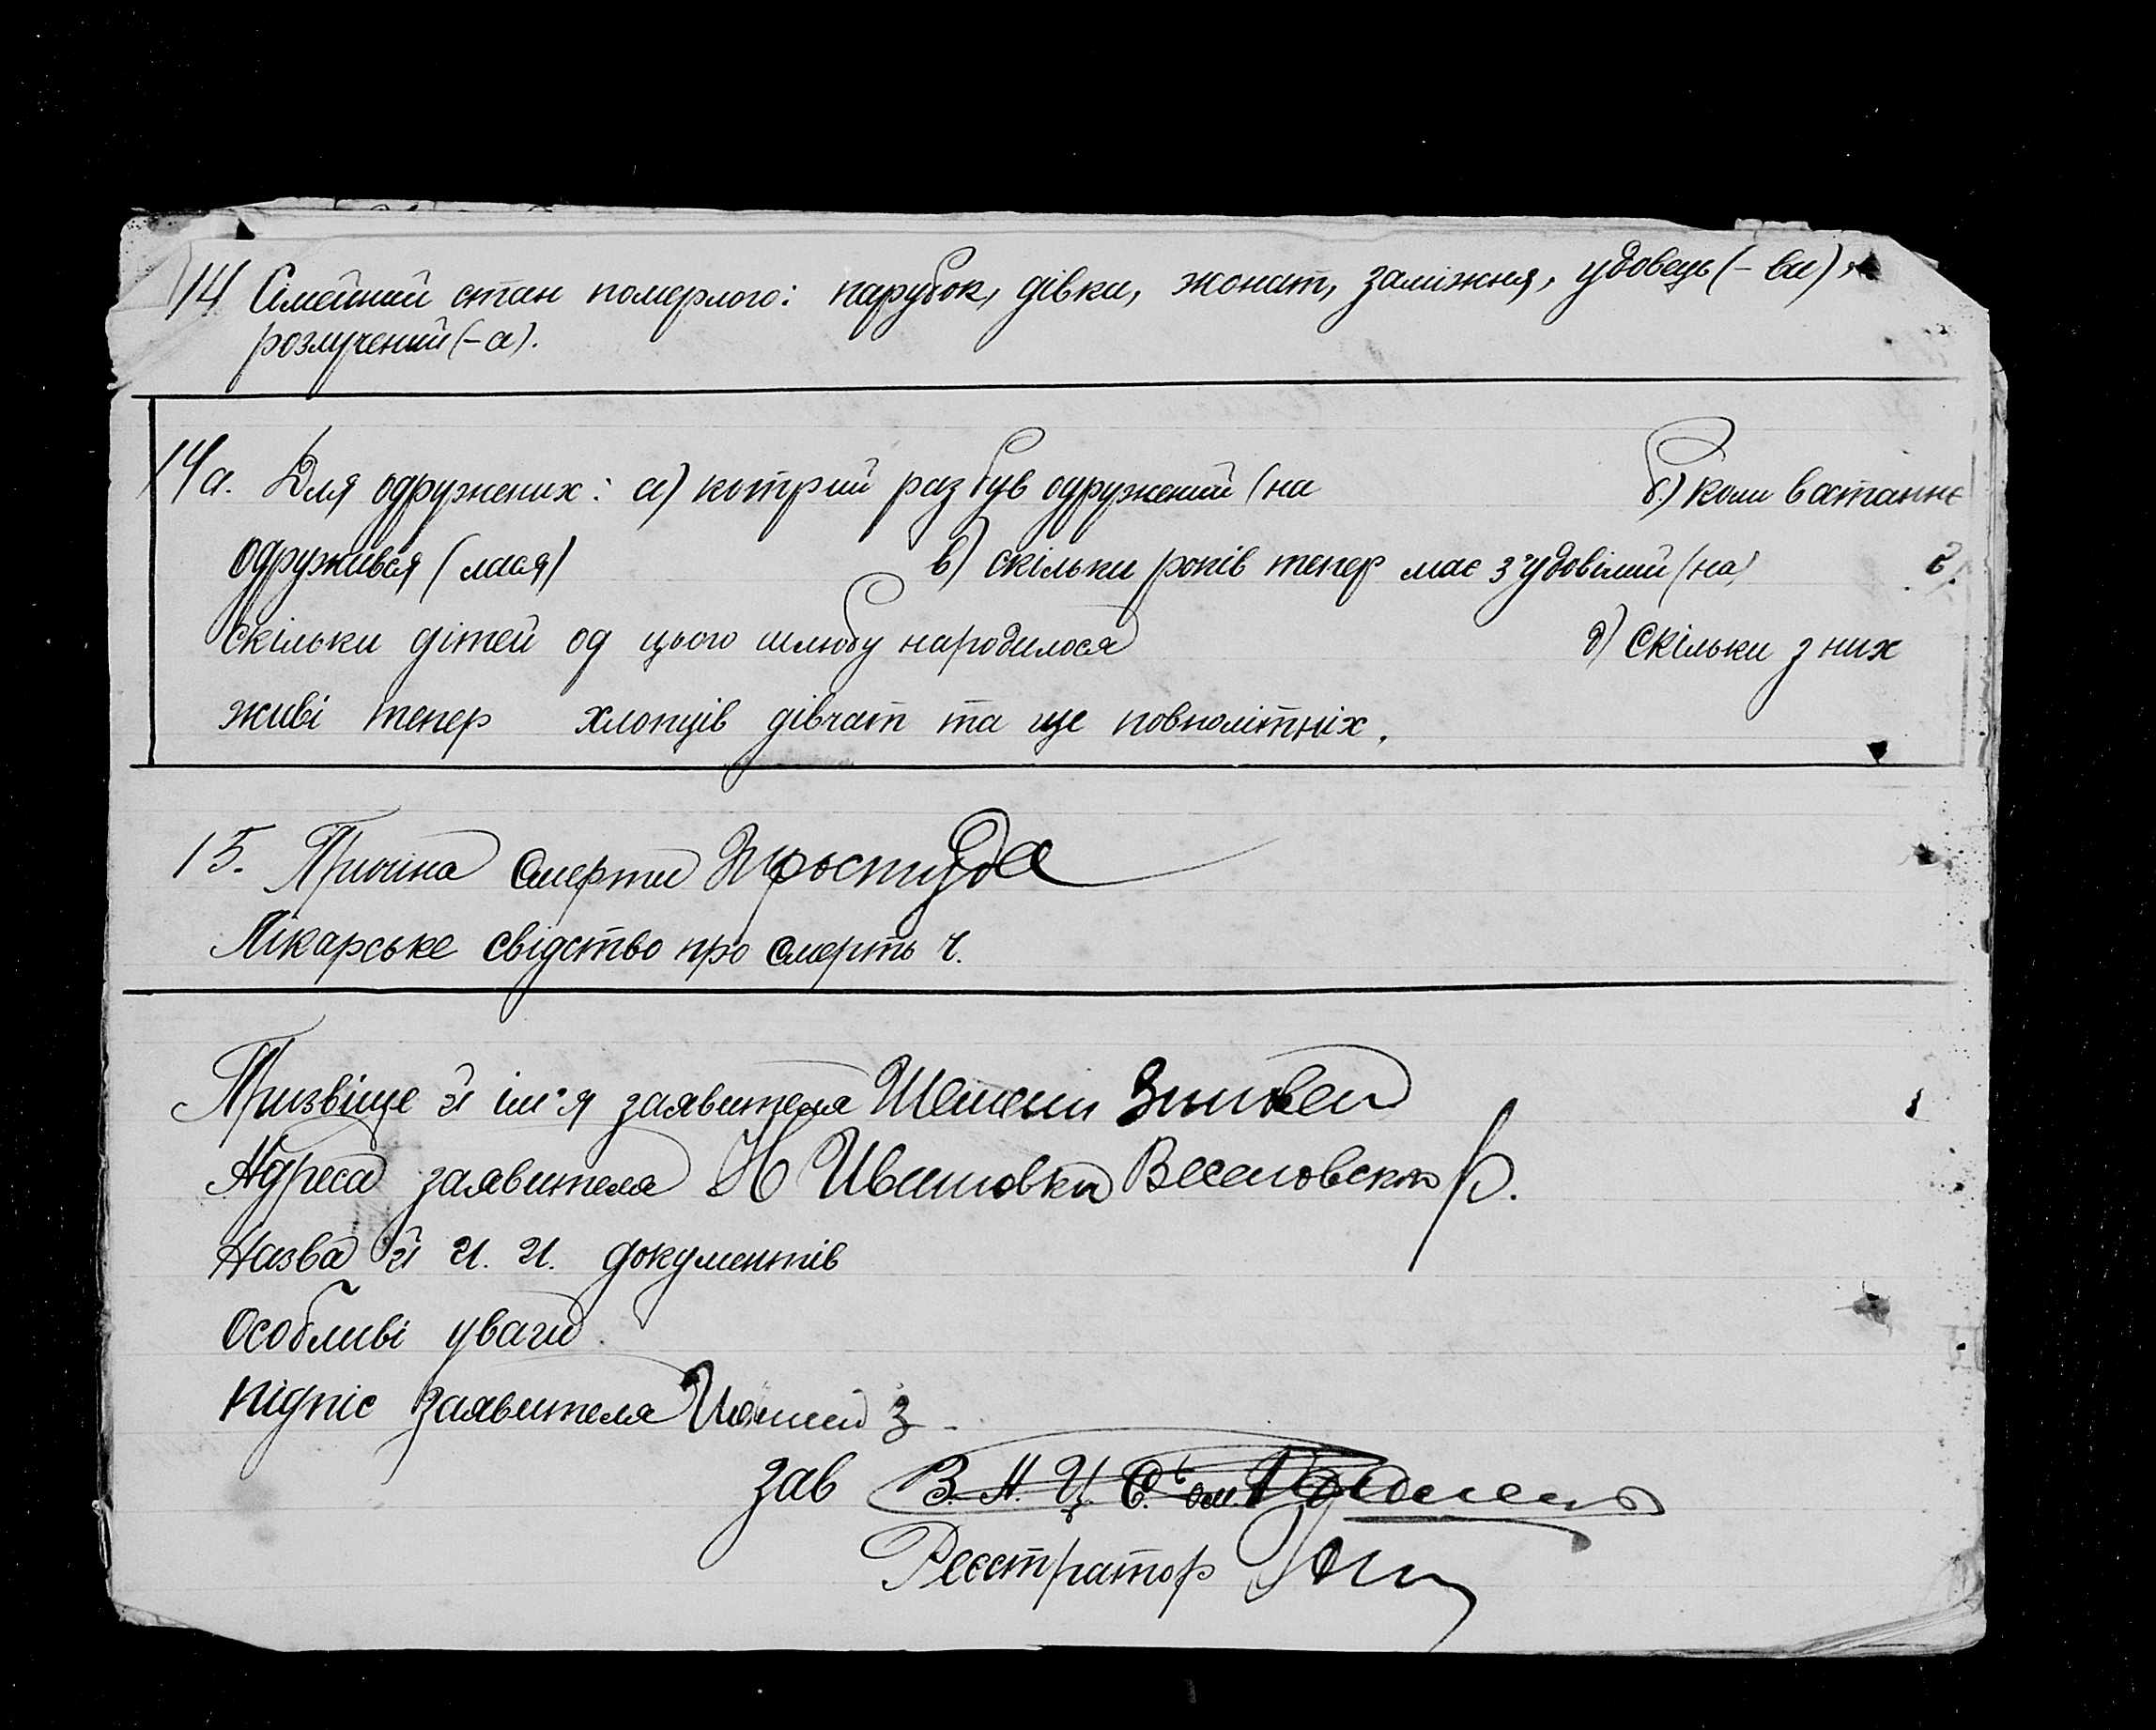 14 Сімейний стан померлого: парубок, дівка, жонат, заміжня, удовець (-ва),
розлучений (-а).
14а. Для одружених: а) котрий раз був одружений (на б) коли востаннє
одружився (лася) в) скільки років тепер має з'удовілий (на)
скільки дітей од цього шлюбу народилося д) скільки з них
живі тепер хлопців дівчат та ще повнолітніх.
15. Причина смерти Простуда
Лікарське свідство про смерть ч.
Призвіще й ім'я заявителя
Адреса заявителя Н Ивановка Веселовского р.
Назва й ч. ч. документів
Особливі уваги
Підпіс заявителя
Зав В. А. Ц. С.
Реєстратор